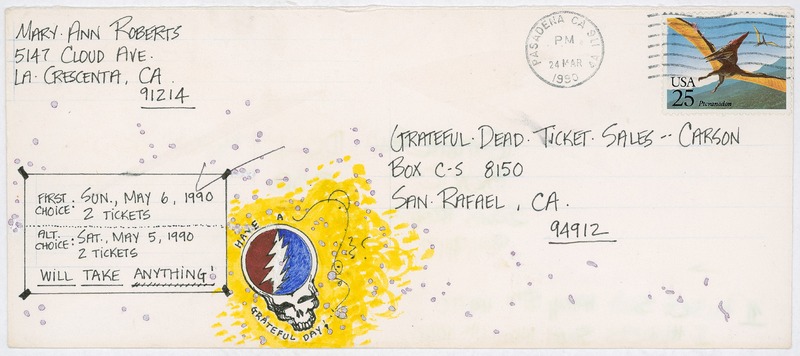 MARY ANN ROBERTS
5147 CLOUD AVE.
LA CRESCENTA, CA.
91214
PASADENA CA
PM
24 MAR
1990
USA
25 Pteranodon
GRATEFUL DEAD TICKET SALES -- CARSON
BOX C-S 8150
SAN RAFAEL, CA.
94912
FIRST CHOICE: SUN., MAY 6, 1990
2 TICKETS
ALT. CHOICE: SAT., MAY 5, 1990
2 TICKETS
WILL TAKE ANYTHING!
HAVE A
GRATEFUL DAY!